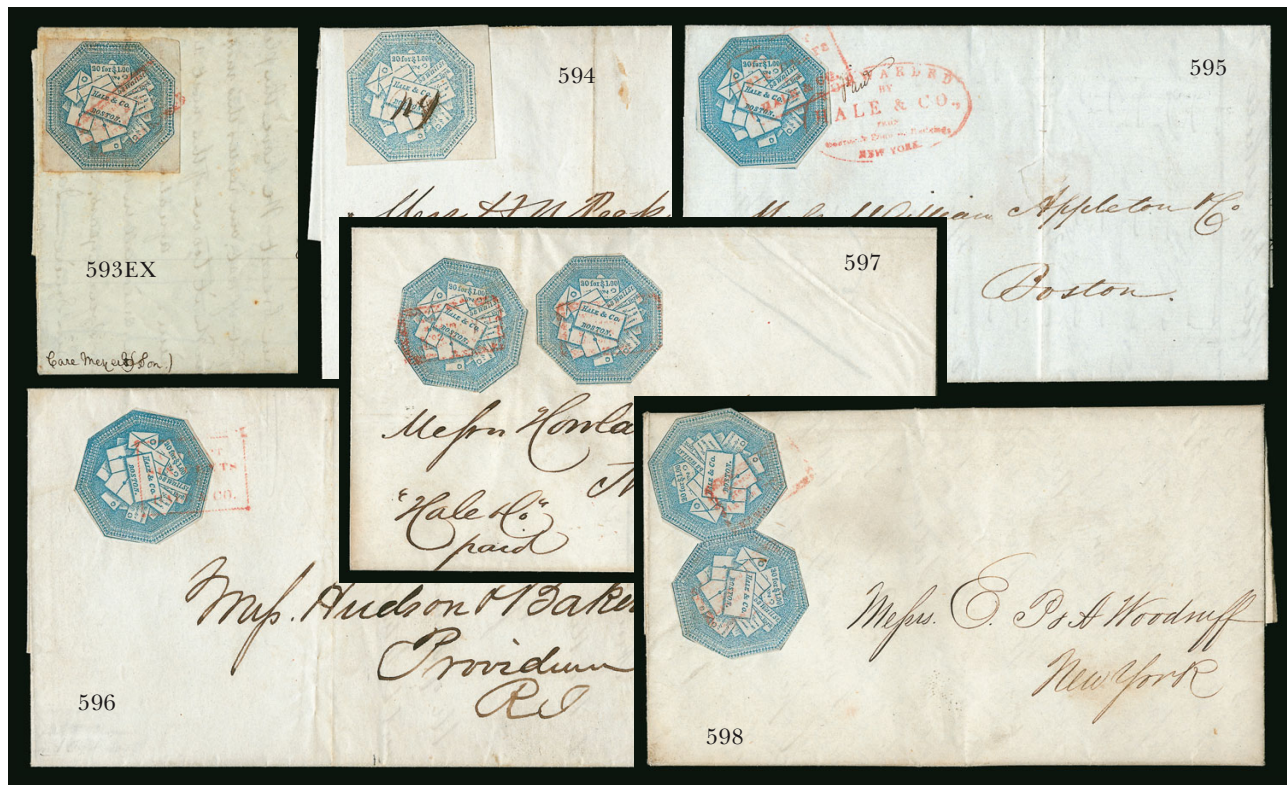 20 for $1.00
HALE & CO.
BOSTON.
593EX
Care Meyer & Son.)
20 for $1.00
HALE & CO.
BOSTON.
594
Messrs H
HALE & CO.
BOSTON.
paid
FORWARDED
BY
HALE & CO.
FROM
NEW YORK.
595
William Appleton & Co
Boston.
20 for $1.00
HALE & CO.
BOSTON.
20 for $1.00
HALE & CO.
BOSTON.
597
Messrs Howla
"Hale & Co"
paid
20 for $1.00
HALE & CO.
BOSTON.
CO.
Mess. Hudson & Baker
Providence
R I
596
20 for $1.00
HALE & CO.
BOSTON.
20 for $1.00
HALE & CO.
BOSTON.
Messrs. E. P & A Woodruff
New York
598